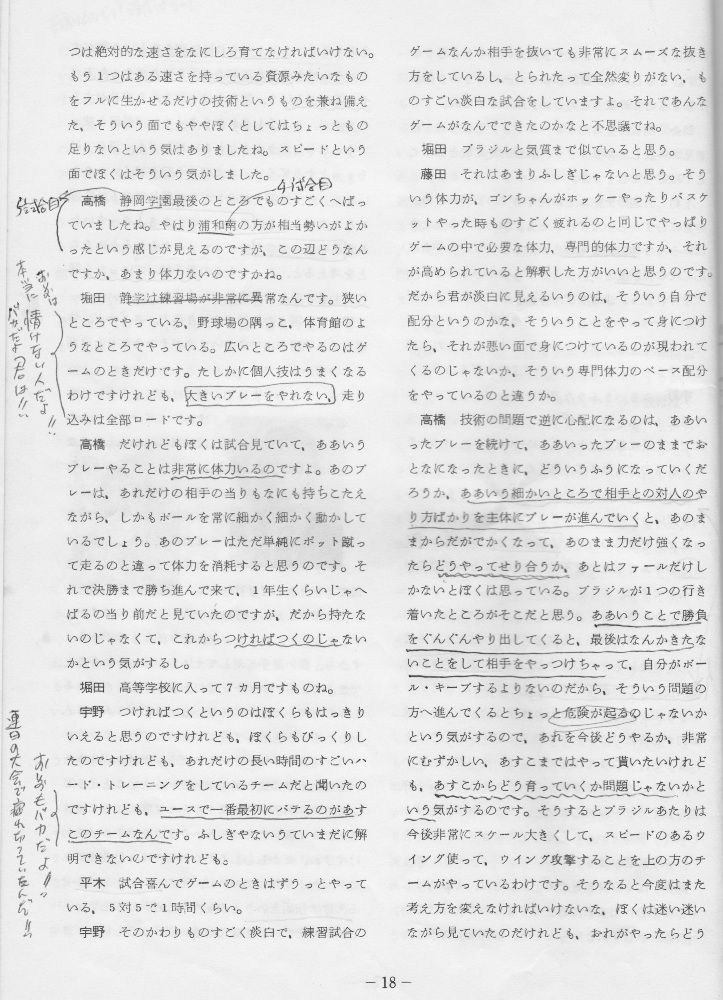 つは絶対的な速さをなにしろ育てなければいけない。
もう1つはある速さを持っている資源みたいなもの
をフルに生かせるだけの技術というものを兼ね備え
た，そういう面でもややぼくとしてはちょっともの
足りないという気はありましたね。スピードという
面でぼくはそういう気がしました。
高橋　静岡学園最後のところでものすごくへばっ
ていましたね。やはり浦和南の方が相当勢いがよか
ったという感じが見えるのですが，この辺どうなん
ですか，あまり体力ないのですかね。
堀田　静学は練習場が非常に異常なんです。狭い
ところでやっている，野球場の隅っこ，体育館のよ
うなところでやっている。広いところでやるのはゲ
ームのときだけです。たしかに個人技はうまくなる
わけですけれども，大きいプレーをやれない，走り
込みは全部ロードです。
高橋　だけれどもぼくは試合見ていて，ああいう
プレーやることは非常に体力いるのですよ。あのプ
レーは，あれだけの相手の当りもなにも持ちこたえ
ながら，しかもボールを常に細かく細かく動かして
いるでしょう。あのプレーはただ単純にポット蹴っ
て走るのと違って体力を消耗すると思うのです。そ
れで決勝まで勝ち進んで来て，1年生くらいじゃへ
ばるの当り前だと見ていたのですが，だから持たな
いのじゃなくて，これからつければつくのじゃない
かという気がするし。
堀田　高等学校に入って7カ月ですものね。
宇野　つければつくというのはぼくらもはっきり
いえると思うのですけれども，ぼくらもびっくりし
たのですけれども，あれだけの長い時間のすごいハ
ード・トレーニングをしているチームだと聞いたの
ですけれども，ユースで一番最初にバテるのがあす
このチームなんです。ふしぎやないうていまだに解
明できないのですけれども。
平木　試合喜んでゲームのときはずうっとやって
いる，5対5で1時間くらい。
宇野　そのかわりものすごく淡白で，練習試合の
ゲームなんか相手を抜いても非常にスムーズな抜き
方をしているし，とられたって全然変りがない，も
のすごい淡白な試合をしていますよ。それであんな
ゲームがなんでできたのかなと不思議でね。
堀田　ブラジルと気質まで似ていると思う。
藤田　それはあまりふしぎじゃないと思う。そう
いう体力が，ゴンちゃんがホッケーやったりバスケ
ットやった時ものすごく疲れるのと同じでやっぱり
ゲームの中で必要な体力，専門的体力ですか，それ
が高められていると解釈した方がいいと思うのです。
だから君が淡白に見えるいうのは，そういう自分で
配分というのかな，そういうことをやって身につけ
たら，それが悪い面で身につけているのが現われて
くるのじゃないか，そういう専門体力のペース配分
をやっているのと違うか。
高橋　技術の問題で逆に心配になるのは，ああい
ったプレーを続けて，ああいったプレーのままでお
となになったときに，どういうふうになっていくだ
ろうか，ああいう細かいところで相手との対人のや
り方ばかりを主体にプレーが進んでいくと，あのま
まからだがでかくなって，あのまま力だけ強くなっ
たらどうやってせり合うか，あとはファールだけし
かないとぼくは思っている。ブラジルが1つの行き
着いたところがそこだと思う。ああいうことで勝負
をぐんぐんやり出してくると，最後はなんかきたな
いことをして相手をやっつけちゃって，自分がボー
ル・キープするよりないのだから，そういう問題の
方へ進んでくるとちょっと危険が起るのじゃないか
という気がするので，あれを今後どうやるか，非常
にむずかしい，あすこまではやって貰いたいけれど
も，あすこからどう育っていくか問題じゃないかと
いう気がするのです。そうするとブラジルあたりは
今後非常にスケール大きくして，スピードのあるウ
イング使って，ウイング攻撃することを上の方のチ
ームがやっているわけです。そうなると今度はまた
考え方を変えなければいけないな，ぼくは迷い迷い
ながら見ていたのだけれども，おれがやったらどう
4試合目
5試合目
本当に情けない人だよ!!
バカだよ君は!!
おとめもバカだよ!!
連日の大会で疲れ切っていたんだ!!
－18－